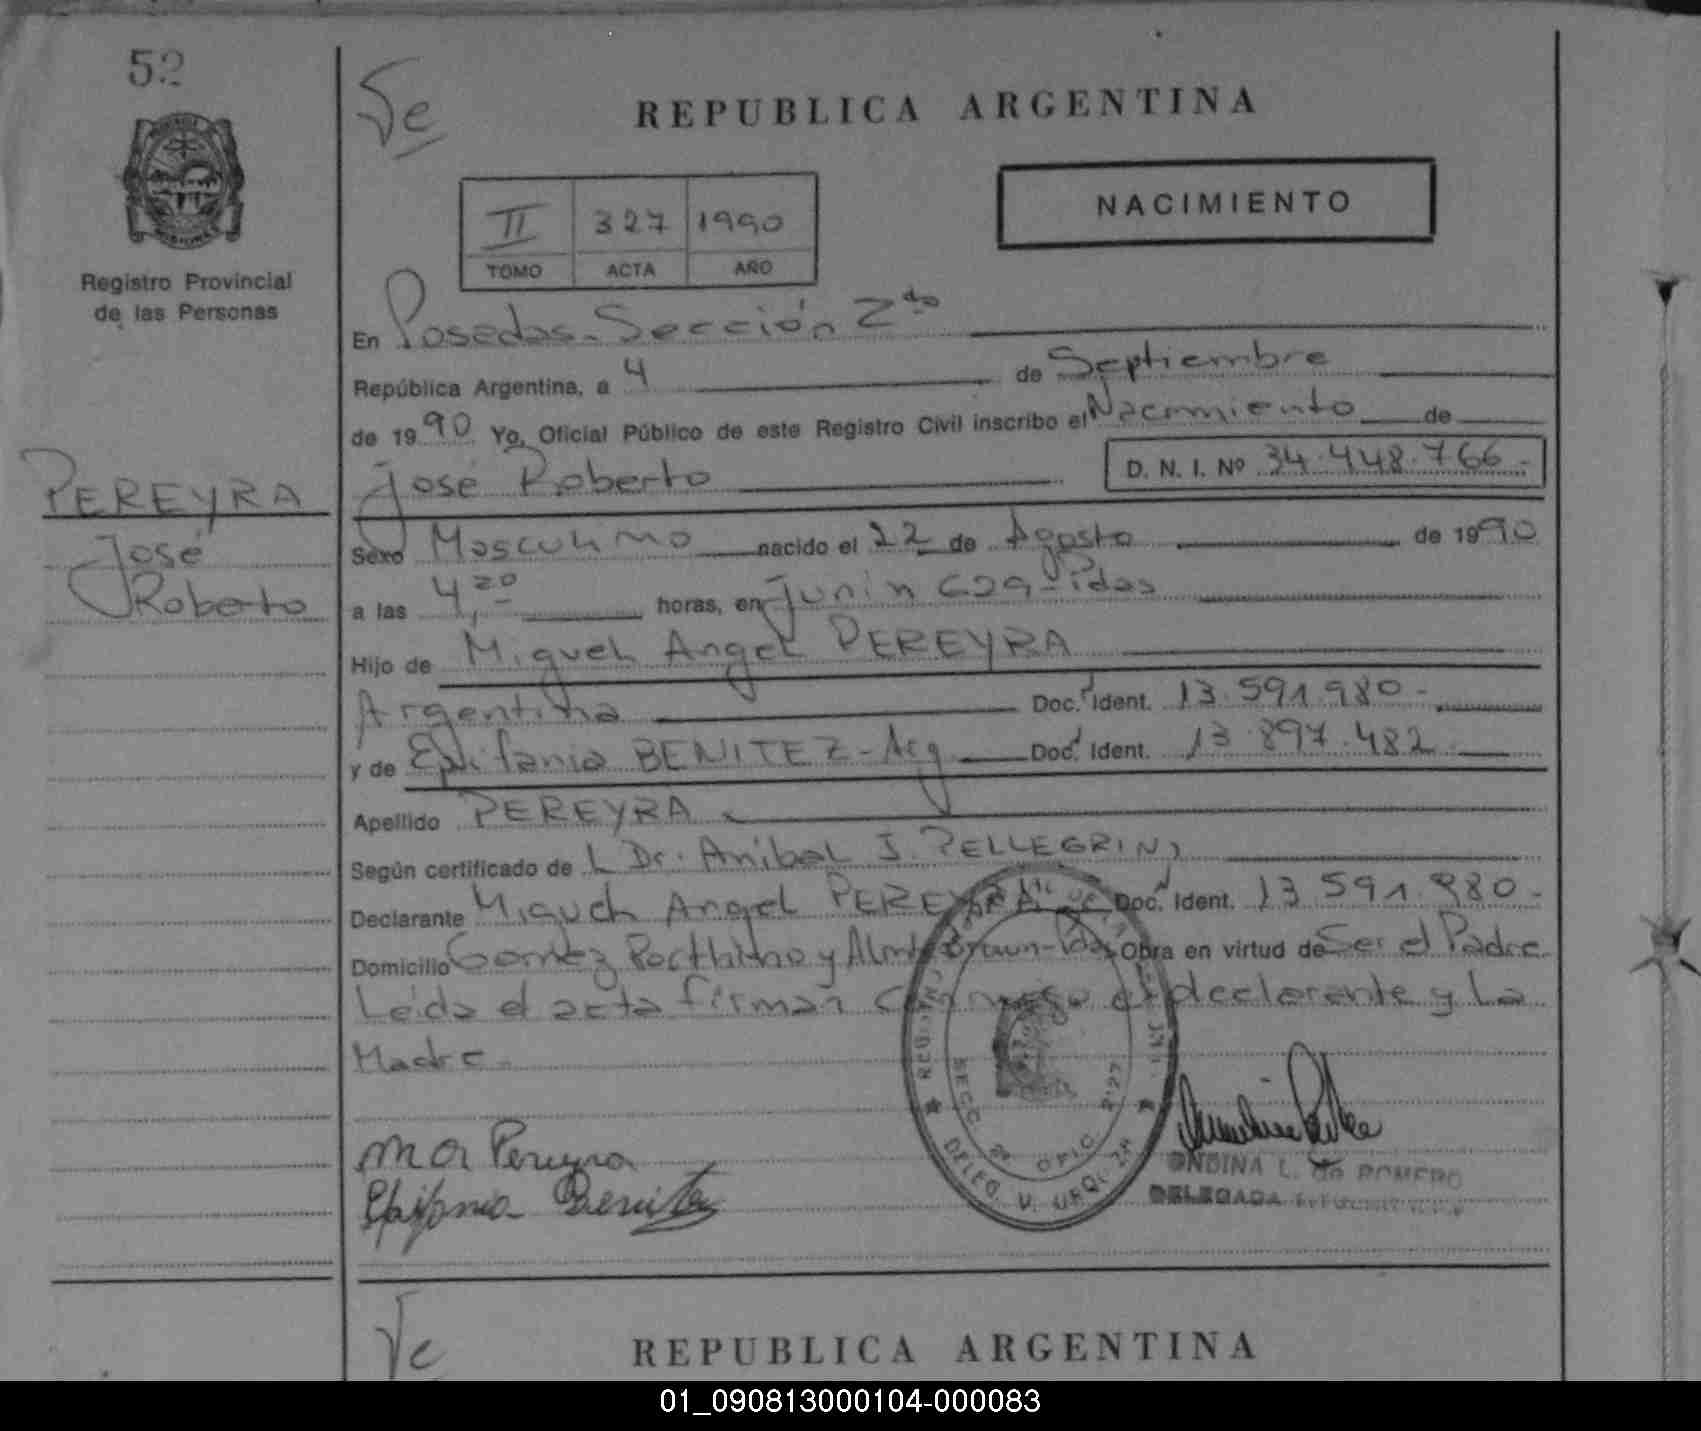 52
Ve
REPUBLICA ARGENTINA
NACIMIENTO
II 327 1990
TOMO ACTA AÑO
Registro Provincial
de las Personas
En Posadas - Sección 2da
República Argentina, a 4 de Septiembre
de 1990 Yo, Oficial Público de este Registro Civil inscribo el Nacimiento de
José Roberto D. N. I. Nº 34.448.766.-
PEREYRA
José
Roberto
Sexo Masculino nacido el 22 de Agosto de 1990
a las 4,20 horas, en Junín 629 - Pdas
Hijo de Miguel Angel PEREYRA
Argentina Doc. Ident. 13.591.980.-
y de Epifania BENITEZ - Arg Doc. Ident. 13.897.482
Apellido PEREYRA
Según certificado de L Dr. Anibal J. PELLEGRINI
Declarante Miguel Angel PEREYRA Doc. Ident. 13.591.980.-
Domicilio Gomez y Brown - Pdas Obra en virtud de Ser el Padre
Leída el acta firman conmigo el declarante y La
Madre.-
SECC 2ª
DELEG. V. URQUIZA
Pereyra
Epifania Benitez
ONDINA L. de ROMERO
DELEGADA
Ve
REPUBLICA ARGENTINA
01_090813000104-000083